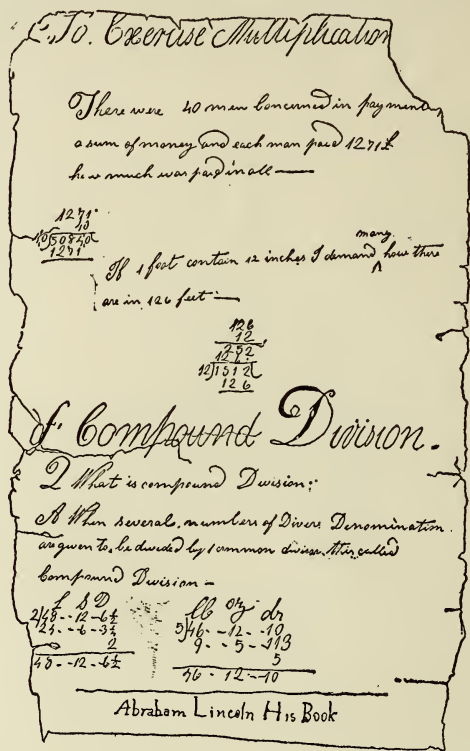 To Exercise Multiplication
There were 40 men Concerned in payment
a sum of money and each man paid 1271£
how much was paid in all
1271
40
40)50840(
1271
many
If 1 foot contain 12 inches I demand how there
are in 126 feet
126
12
252
126
12)1512(
126
of Compound Division.
Q What is compound Division;
A When several numbers of Divers Denomination
are given to be devided by common divisor this called
Compound Division
£ S D
2)48--12-6½
24--6-3¼
2
48--12-6½
lb oz dr
5)46--12--10
9--5--
5
46-12--10
Abraham Lincoln His Book